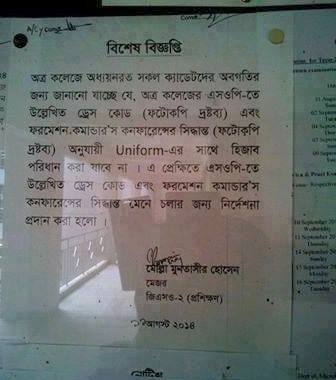 বিশেষ বিজ্ঞপ্তি
অত্র কলেজে অধ্যয়নরত সকল ক্যাডেটদের অবগতির
জন্য জানানো যাচ্ছে যে, অত্র কলেজের এসওপি-তে
উল্লেখিত ড্রেস কোড (ফটোকপি দ্রষ্টব্য) এবং
ফরমেশন কমান্ডার'স কনফারেন্সের সিদ্ধান্ত (ফটোকপি
দ্রষ্টব্য) অনুযায়ী Uniform-এর সাথে হিজাব
পরিধান করা যাবে না । এ প্রেক্ষিতে এসওপি-তে
উল্লেখিত ড্রেস কোড এবং ফরমেশন কমান্ডার'স
কনফারেন্সের সিদ্ধান্ত মেনে চলার জন্য নির্দেশনা
প্রদান করা হলো ।
মোল্লা মুনতাসীর হোসেন
মেজর
জিএসও-২ (প্রশিক্ষণ)
আগস্ট ২০১৪